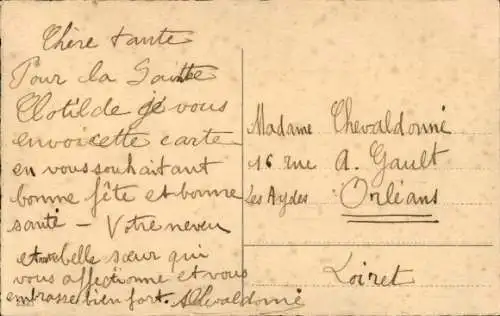 Chère tante
Pour la Sainte
Clotilde je vous
envoie cette carte
en vous souhaitant
bonne fête et bonne
santé - Votre neveu
et belle sœur qui
vous affectionne et vous
embrasse bien fort. Chevaldonné
Madame Chevaldonné
16 rue A. Gault
Les Aydes Orléans
Loiret